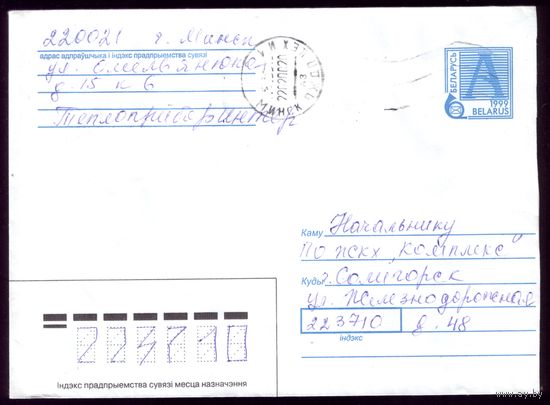 220021 г. Минск
адрас адпраўшчыка і індэкс прадпрыемства сувязі
ул. Емельянюка
д 15 к 6
Теплоприбор Интер
МИНСК
БЕЛАРУСЬ
A
1999
BELARUS
Каму Начальнику
ПО ЖКХ „Комплекс“
Куды г. Солигорск
ул. Железнодорожная
223710 д. 48
індэкс
223710
Індэкс прадпрыемства сувязі месца назначэння
www.ay.by